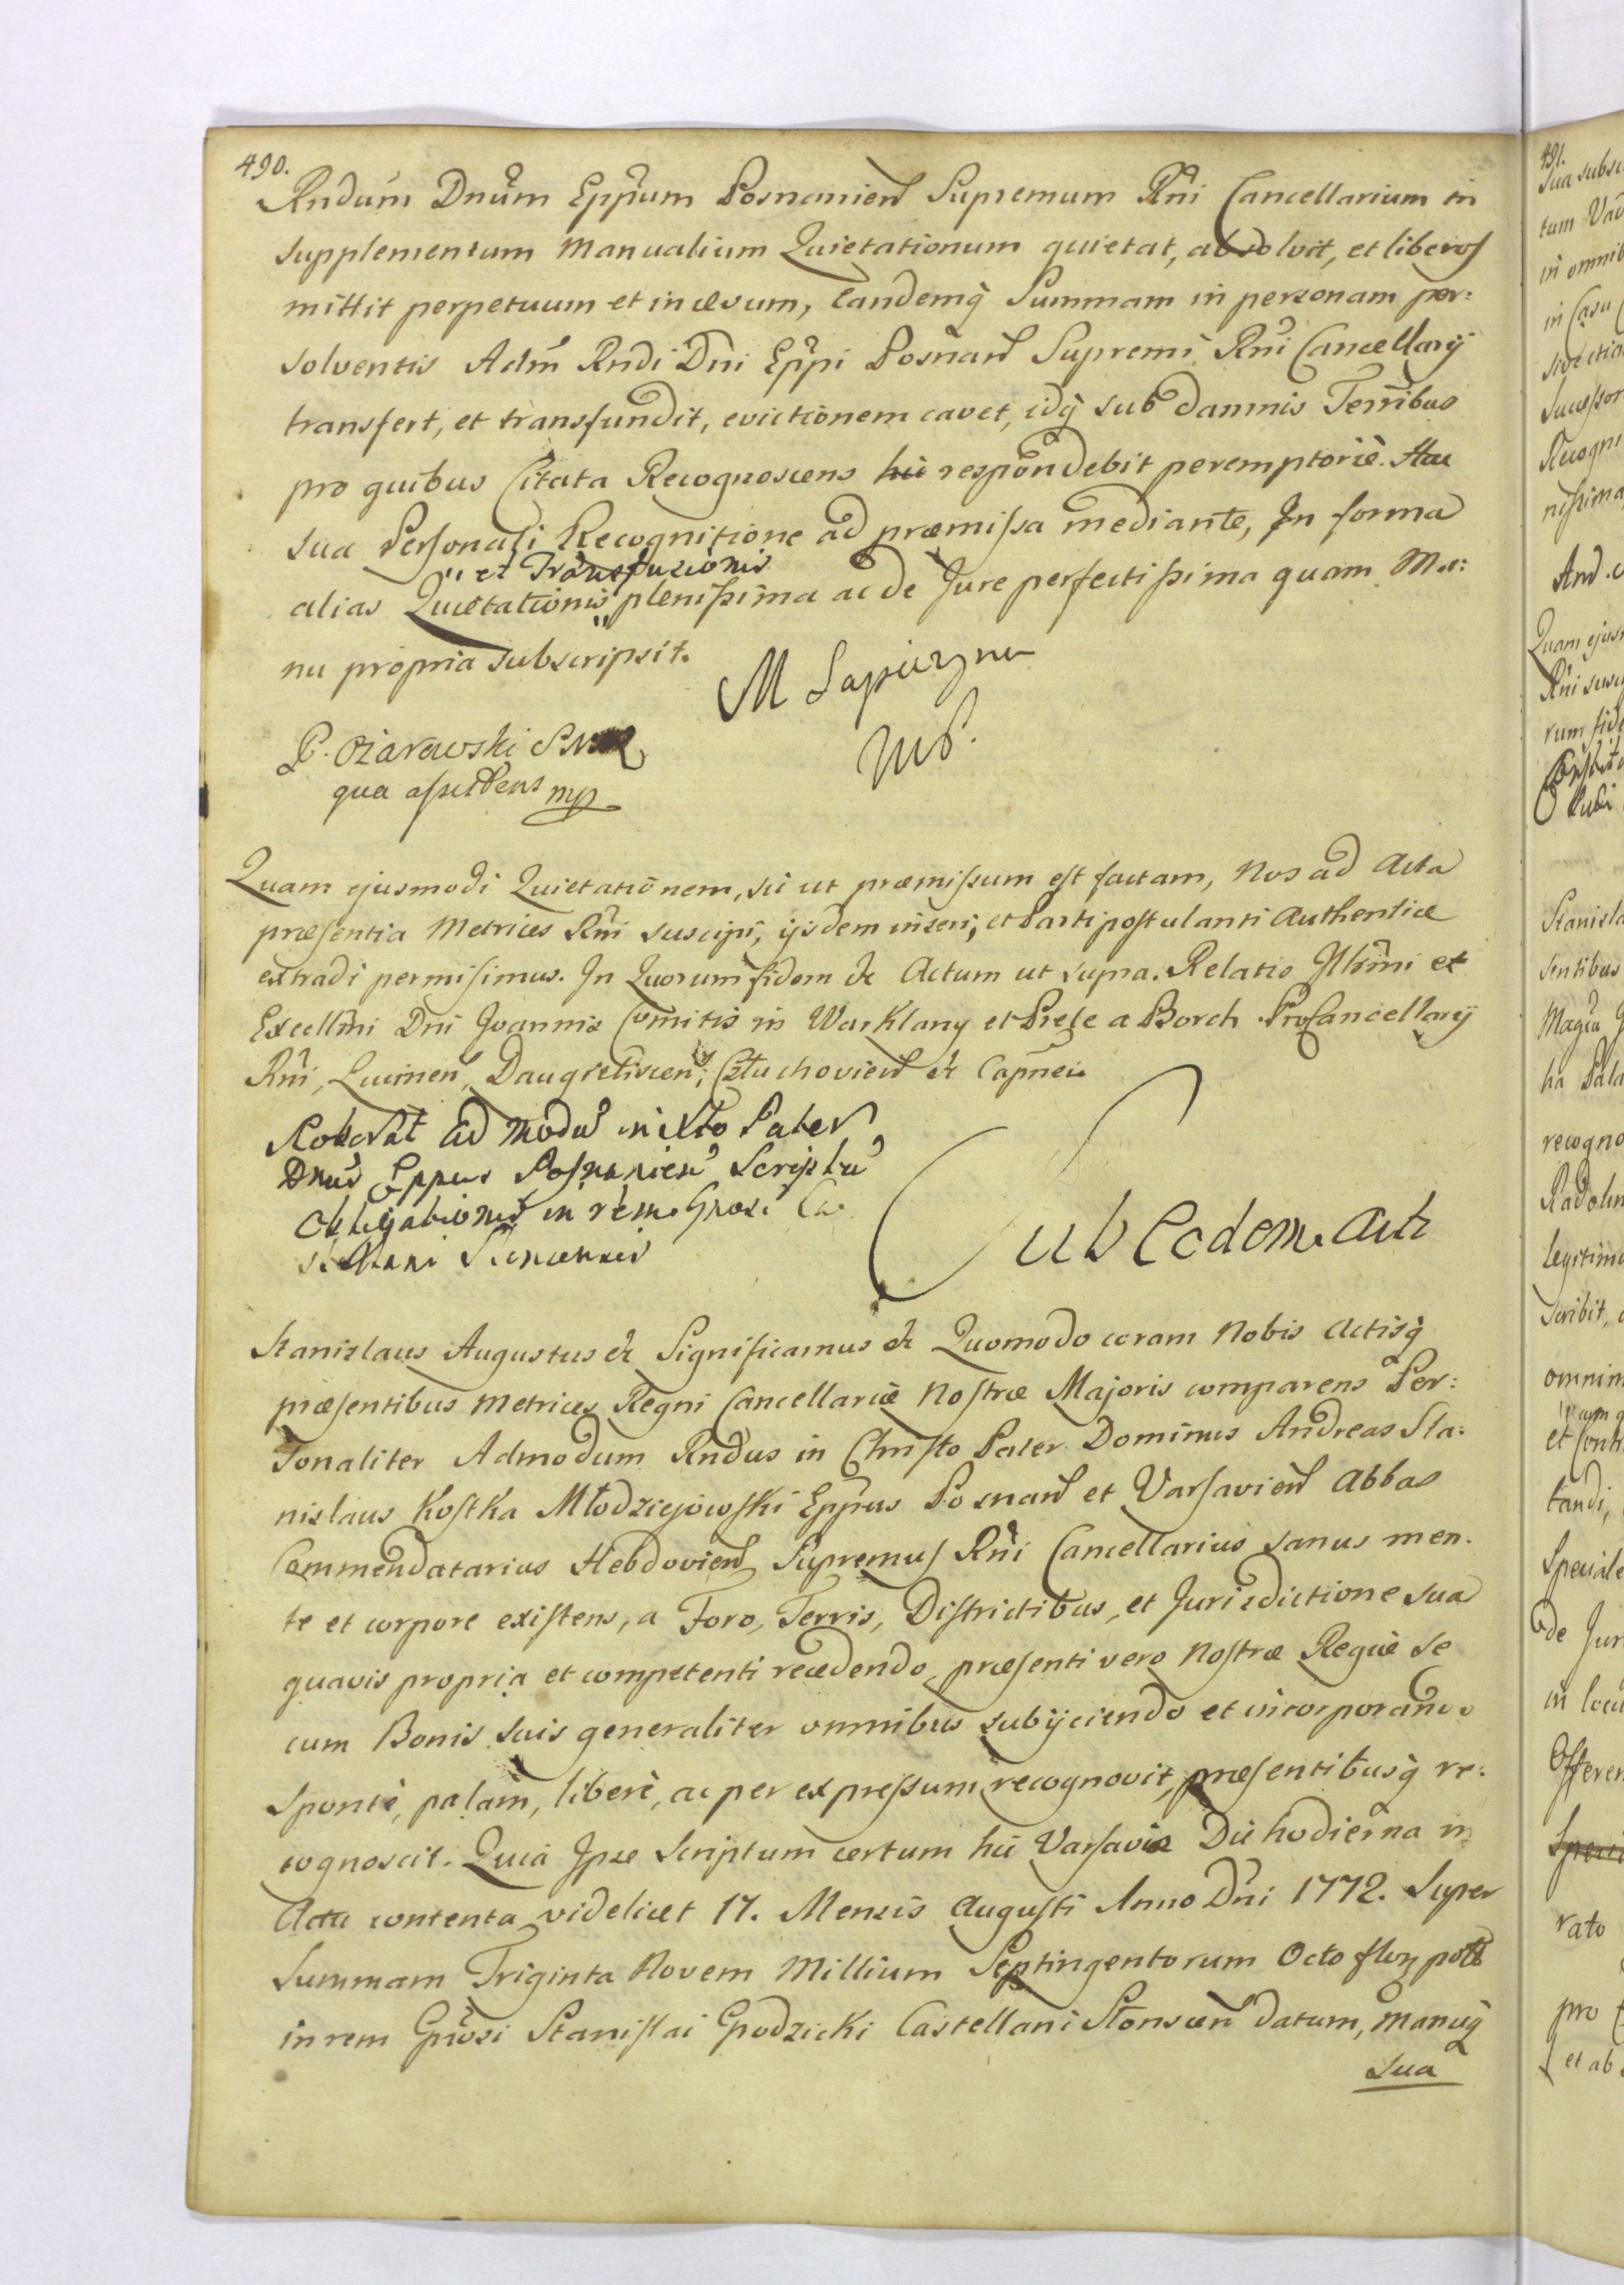 490.
Rndum Dnum Eppum Posnanien Supremum Rni Cancellarium in
supplementum Manualium Quietationum quietat, absolvit, et liberos
mittit perpetuum et in ævum, Eandemq Summam in personam per:
solventis Adm Rndi Dni Eppi Posnan Supremi Rni Cancellarÿ
transfert, et transfundit, evictionem cavet, idq sub damnis Terribus
pro quibus Citata Recognoscens hic respondebit peremptoriè. Hac
sua Personali Recognitione ad præmissa mediante, In forma
" et Transfusionis
alias Quietationis " plenissima ac de Jure perfectissima quam Ma:
nu propria subscripsit.
M Sapiezyna
mp.
P. Ożarowski
qua assistens mp
Quam ejusmodi Quietationem, sic ut præmissum est factam, Nos ad Acta
præsentia Metrices Rni suscipi, ijsdem inseri, et Parti postulanti Authentice
extradi permisimus. In Quorum fidem &c Actum ut supra. Relatio Illrimi et
Excellmi Dni Joannis Comitis in Warklany et Prele a Borch ProCancellarÿ
Rni, Lucinen, Daugieliscen, Człuchovien &c Capnei
Roborat Ad Modu in Xto Pater
Dnus Eppus Posnanien Scriptu
Obligationis in rem Gnosi Ca
stellani
Sub Eodem Actu
Stanislaus Augustus &c Significamus &c Quomodo coram Nobis Actisq
præsentibus Metrices Regni Cancellariæ Nostræ Majoris comparens Per:
sonaliter Admodum Rndus in Christo Pater Dominus Andreas Sta:
nislaus Kostka Młodziejowski Eppus Posnan et Varsavien Abbas
Commendatarius Hebdovien Supremus Rni Cancellarius sanus men:
te et corpore existens, a Foro, Terris, Districtibus, et Jurisdictione sua
quavis propria et competenti recedendo, præsenti vero Nostræ Regiæ se
cum Bonis suis generaliter omnibus subijciendo et incorporando
Sponte, palàm, liberè, ac per expressum recognovit, præsentibusq re:
cognoscit. Quia Ipse Scriptum certum hic Varsaviæ Die hodierna in
Actu contenta videlicet 17. Mensis Augusti Anno Dni 1772. Super
Summam Triginta Novem Millium Septingentorum Octo flor poll
in rem Gnosi Stanislai Grodzicki Castellani Słonscen datum, Manuq
sua